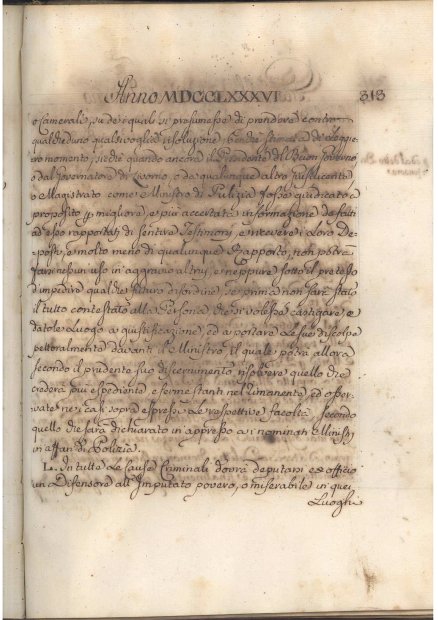 Anno MDCCLXXXVI 313
o Camerali, su de quali si presumesse di prendere contro
qualcheduno qualsivoglia risoluzione benchè stimata de leggie
ro momento, siechè quando ancora dal Presidente del Buon Governo
o dal Governatore di Livorno, o da qualunque altro Jusdicente
o Magistrato come Ministro di Pulizia fosse giudicato a
proposito p. migliore, e più accertata informazione de fatti
ad esso rapportati di sentire Testimonj, e ricevere i loro De-
posti, e molto meno di qualunque Rapporto, non potrà
farne un uso in aggravio altrui, e neppure sotto il pretesto
d'impedire qualche futuro disordine se prima non sarà stato
il tutto contestato alla Persona che si volesse castigare e
datole Luogo a giustificazione, ed a portare le sue discolpe
pettoralmente davanti il Ministro il quale potrà allora
secondo il prudente suo discernimento risolvere quello che
crederà più espediente, e ferme stanti nel rimanente ed osser-
vate ne i casi sopra espressi Le respettive facoltà secondo
quello che sarà dichiarato in appresso a i nominati Ministri
in affari di Polizia.
L. In tutte le Cause Criminali dovrà deputarsi ex officio
un Difensore all' Imputato povero, o miserabile in quei
Luoghi